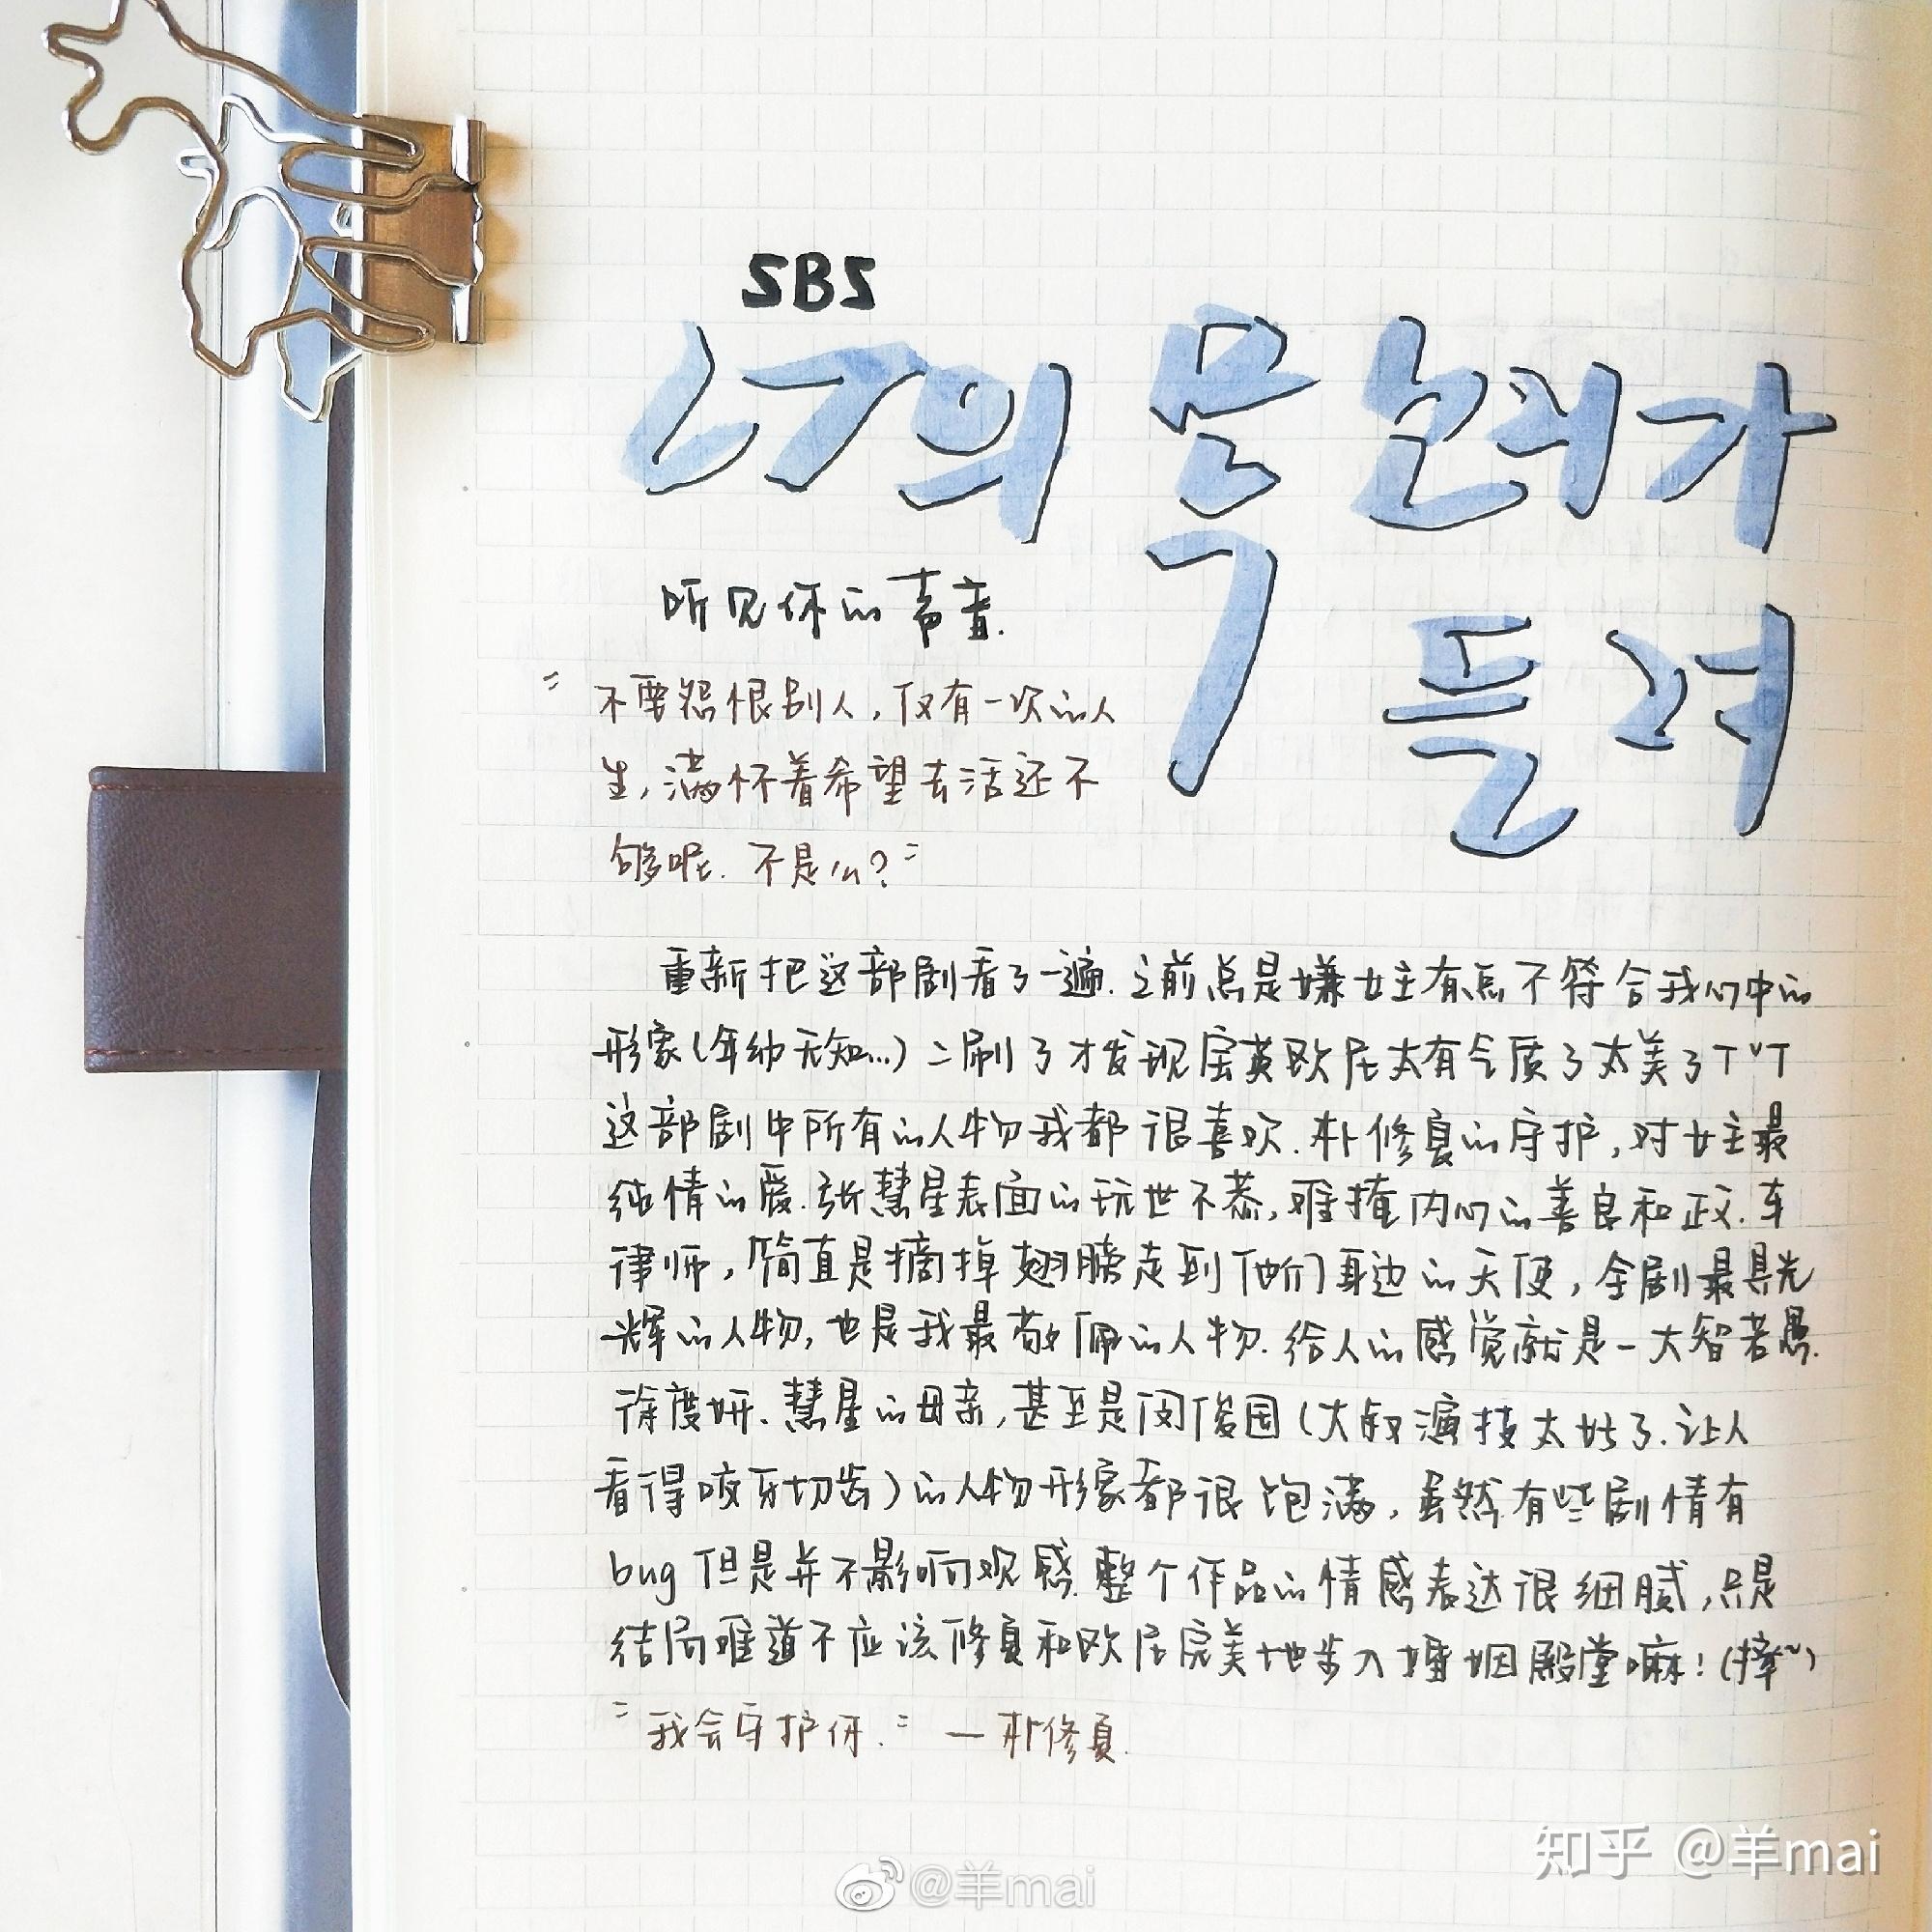 SBS
너의 목소리가
들려
听见你的声音.
"不要怨恨别人,仅有一次的人
生,满怀着希望去活还不
够呢.不是么?"
重新把这部剧看了一遍.之前总是嫌女主有点不符合我心中的
形象(年幼无知...)二刷了才发现宝英欧尼太有气质了太美了TvT
这部剧中所有的人物我都很喜欢.朴修夏的守护,对女主最
纯情的爱.张慧星表面的玩世不恭,难掩内心的善良和正义.车
律师,简直是摘掉翅膀走到他们身边的天使,全剧最具光
辉的人物,也是我最敬佩的人物.给人的感觉就是一大智若愚.
徐度妍、慧星的母亲,甚至是闵俊国(大叔演技太好了.让人
看得咬牙切齿)的人物形象都很饱满,虽然有些剧情有
bug但是并不影响观感.整个作品的情感表达很细腻,只是
结局难道不应该修夏和欧尼完美地步入婚姻殿堂嘛!(摔~)
"我会守护你."—朴修夏.
知乎 @羊mai
@羊mai